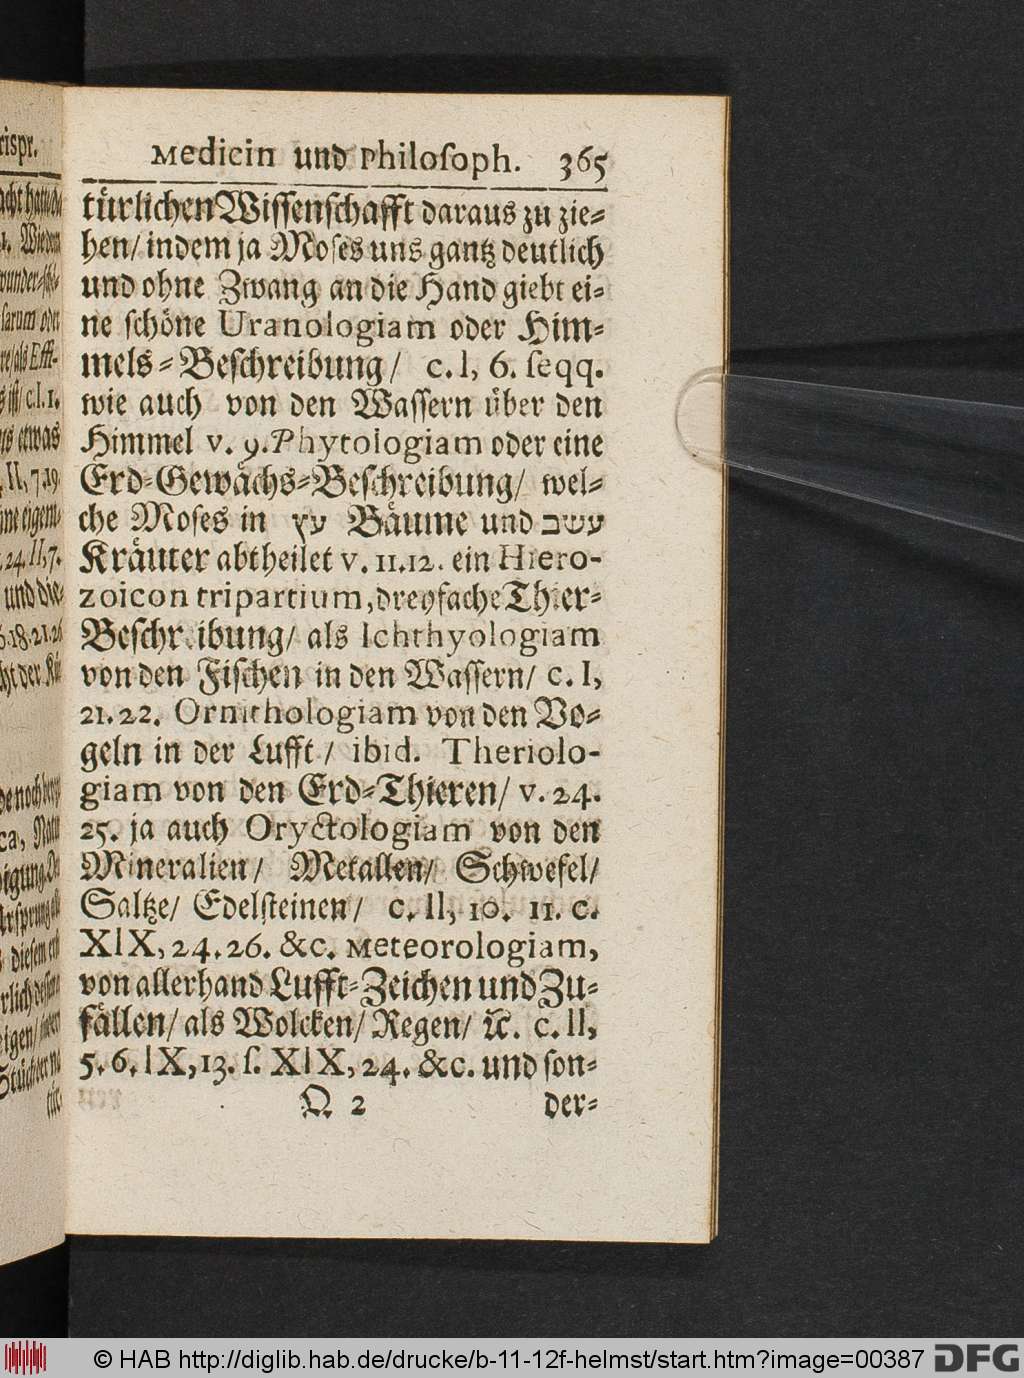 Medicin und Philosoph. 365
türlichen Wissenschafft daraus zu zie-
hen/ indem ja Moses uns gantz deutlich
und ohne Zwang an die Hand giebt ei-
ne schöne Uranologiam oder Him-
mels-Beschreibung/ c. l, 6. seqq.
wie auch von den Wassern über den
Himmel v. 9. Phytologiam oder eine
Erd-Gewächs-Beschreibung/ wel-
che Moses in עץ Bäume und עשב
Kräuter abtheilet v. 11.12. ein Hiero-
zoicon tripartium, dreyfache Thier-
Beschr.ibung/ als Ichthyologiam
von den Fischen in den Wassern/ c. I,
21.22. Ornithologiam von den Vo-
geln in der Lufft/ ibid. Theriolo-
giam von den Erd-Thieren/ v. 24.
25. ja auch Oryctologiam von den
Mineralien/ Metallen/ Schwefel/
Saltze/ Edelsteinen/ c. II, 10. 11. c.
XIX, 24.26. &c. Meteorologiam,
von allerhand Lufft-Zeichen und Zu-
fällen/ als Wolcken/ Regen/ ꝛc. c. II,
5.6. IX, 13. s. XIX, 24. &c. und son-
Q 2 der-
© HAB http://diglib.hab.de/drucke/b-11-12f-helmst/start.htm?image=00387 DFG